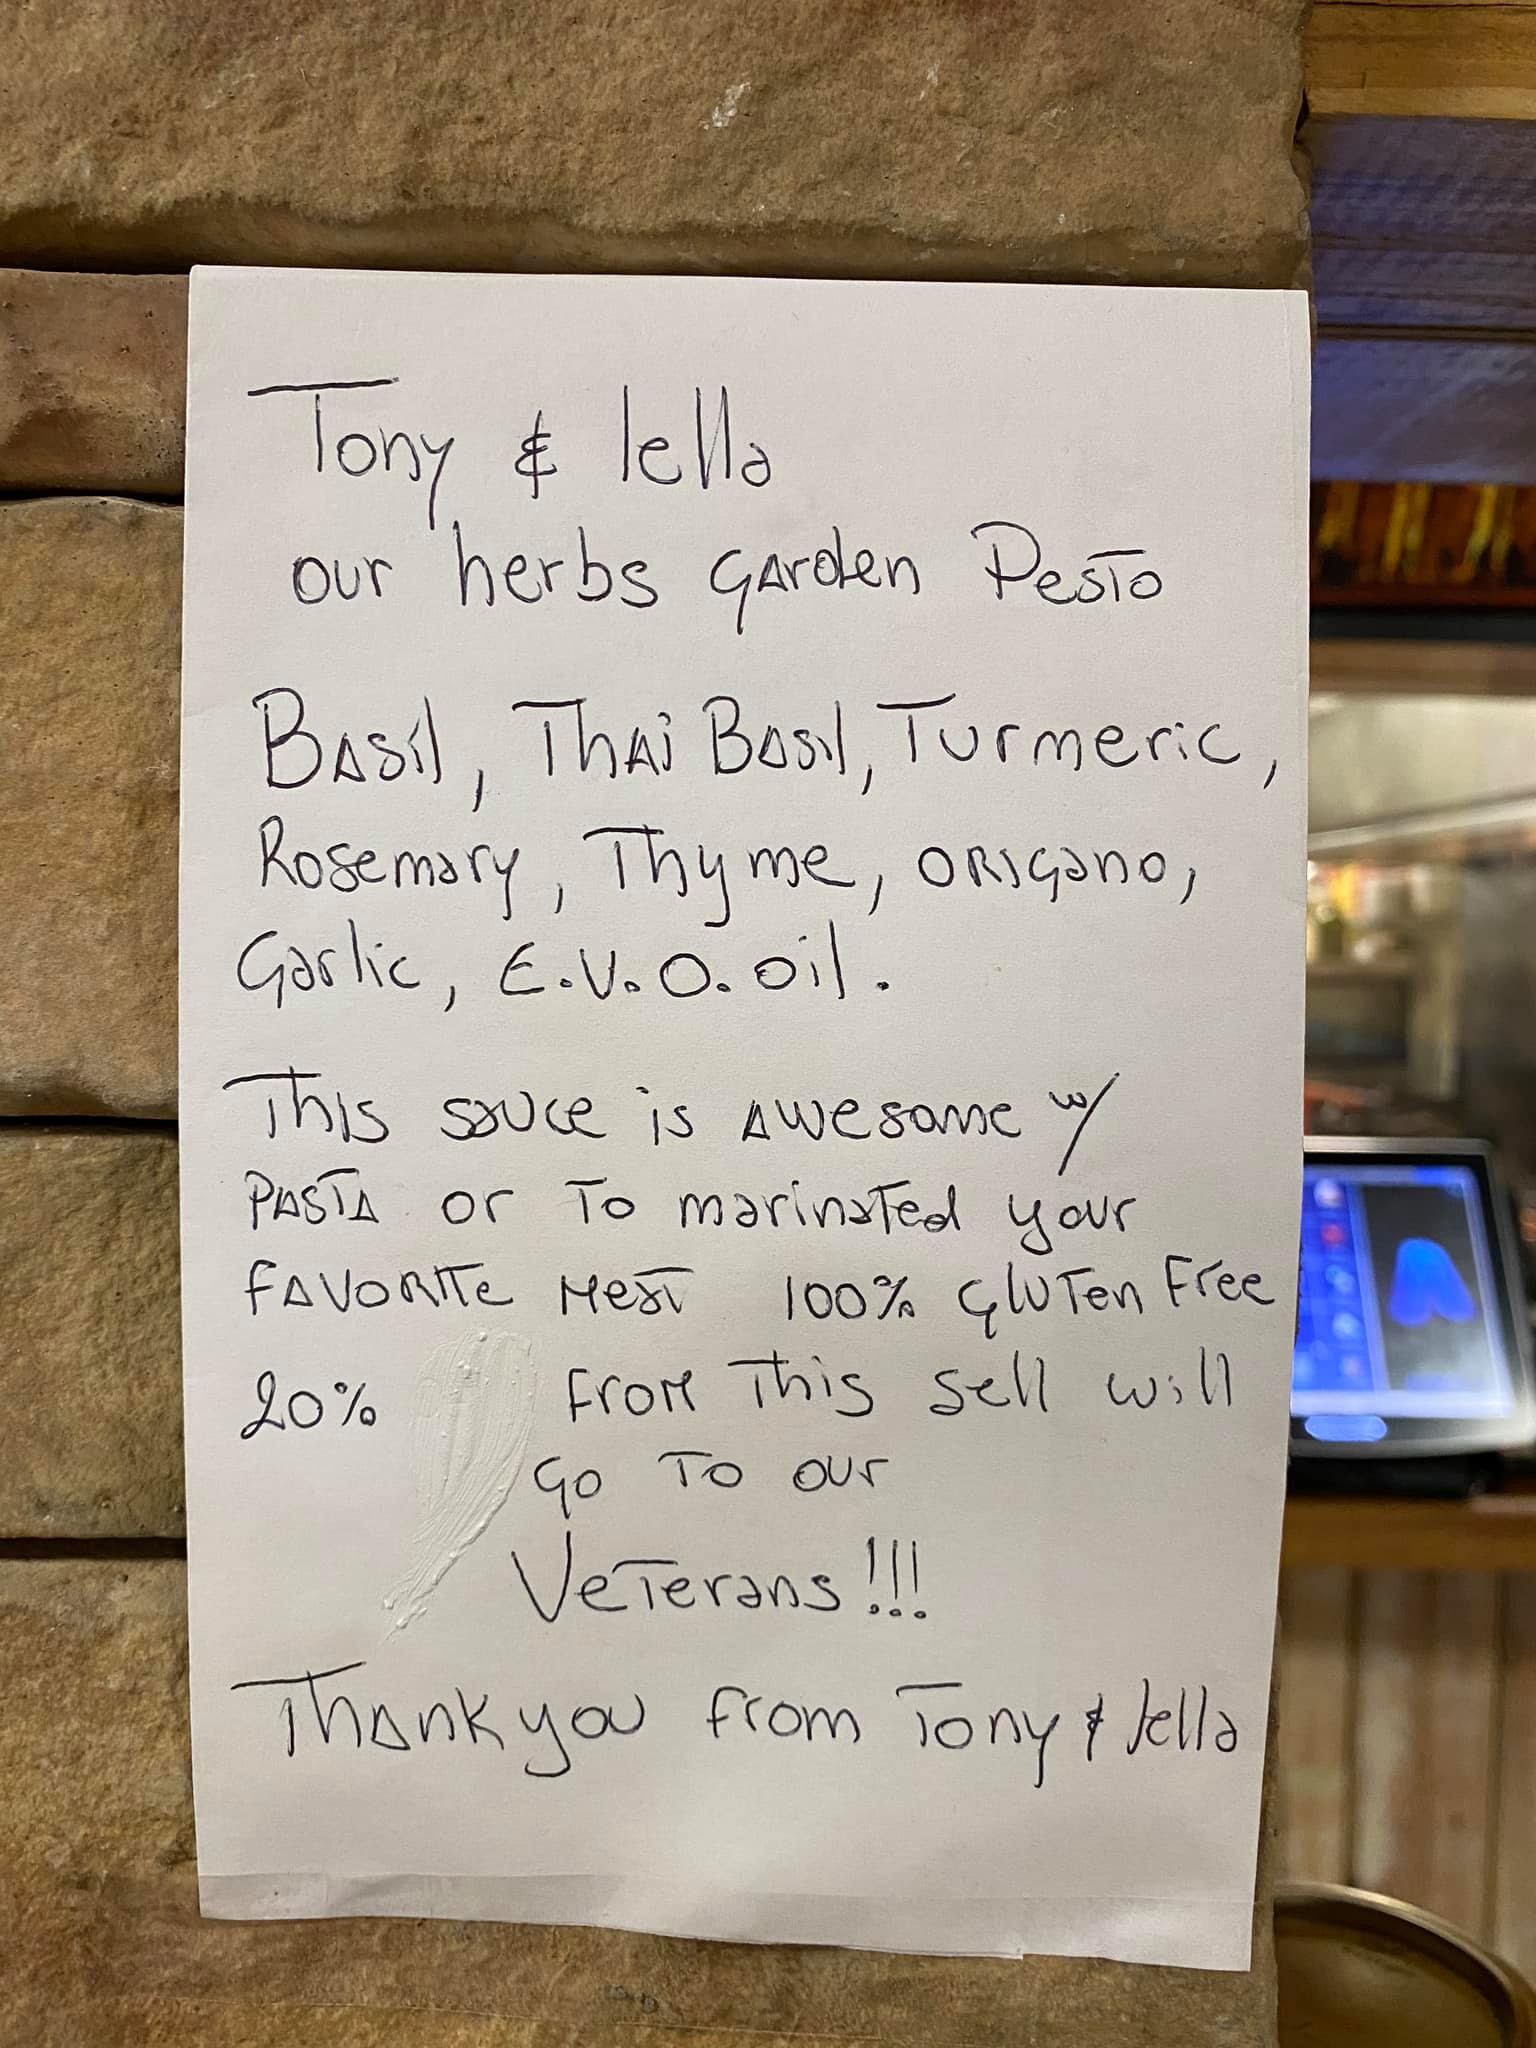 Tony & lella
our herbs garden Pesto
Basil, Thai Basil, Turmeric,
Rosemary, Thyme, origano,
Garlic, E.V.O. oil.
This sauce is awesome w/
pasta or to marinated your
favorite meat 100% gluten free
20% from this sell will
go to our
Veterans!!!
Thank you from Tony & lella